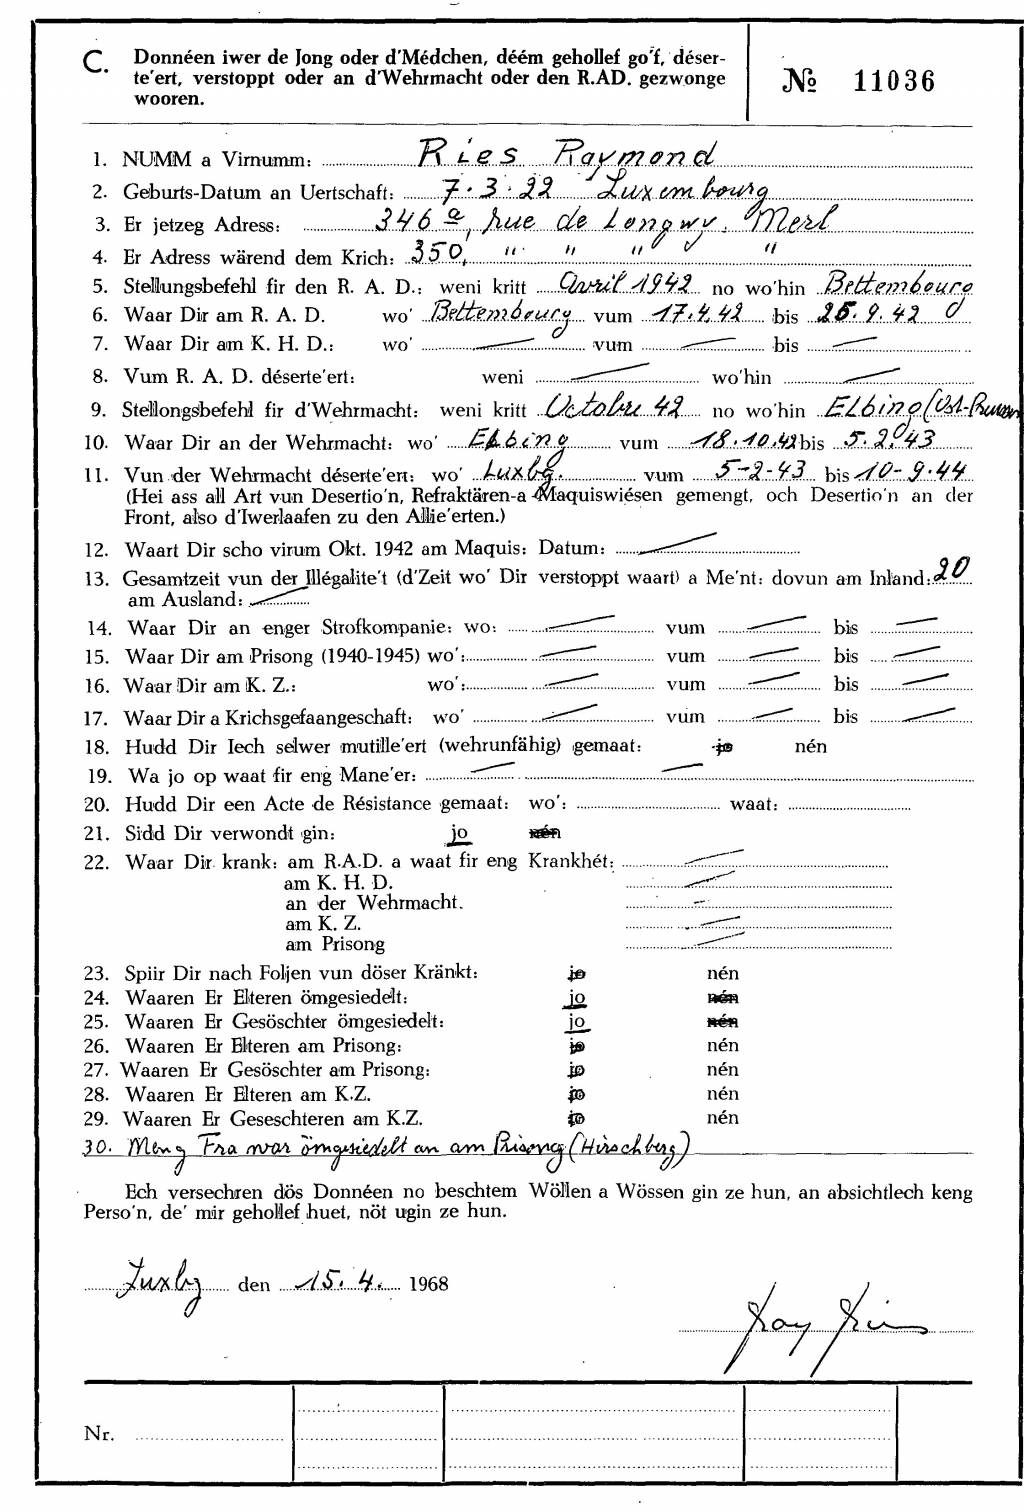 C. Donnéen iwer de Jong oder d'Médchen, déém gehollef go'f, déser-
te'ert, verstoppt oder an d'Wehrmacht oder den R.AD. gezwonge
wooren.
№ 11036
1. NUMM a Virnumm: Ries Raymond
2. Geburts-Datum an Uertschaft: 7.3.22 Luxembourg
3. Er jetzeg Adress: 346 a, rue de Longwy. Merl
4. Er Adress wärend dem Krich: 350, " " " "
5. Stellungsbefehl fir den R. A. D.: weni kritt Avril 1942 no wo'hin Bettembourg
6. Waar Dir am R. A. D. wo' Bettembourg vum 17.4.42 bis 25.9.42
7. Waar Dir am K. H. D.: wo' — vum — bis —
8. Vum R. A. D. déserte'ert: weni — wo'hin —
9. Stellongsbefehl fir d'Wehrmacht: weni kritt Octobre 42 no wo'hin Elbing (Ost-Preussen
10. Waar Dir an der Wehrmacht: wo' Elbing vum 18.10.42 bis 5.2.43
11. Vun der Wehrmacht déserte'ert: wo' Luxbg. vum 5-2-43 bis 10-9-44
(Hei ass all Art vun Desertio'n, Refraktären-a Maquiswiésen gemengt, och Desertio'n an der
Front, also d'Iwerlaafen zu den Allie'erten.)
12. Waart Dir scho virum Okt. 1942 am Maquis: Datum: —
13. Gesamtzeit vun der Illégalite't (d'Zeit wo' Dir verstoppt waart) a Me'nt: dovun am Inland: 20
am Ausland: —
14. Waar Dir an enger Strofkompanie: wo: — vum — bis —
15. Waar Dir am Prisong (1940-1945) wo': — vum — bis —
16. Waar Dir am K. Z.: wo': — vum — bis —
17. Waar Dir a Krichsgefaangeschaft: wo' — vum — bis —
18. Hudd Dir Iech selwer mutille'ert (wehrunfähig) gemaat: jo nén
19. Wa jo op waat fir eng Mane'er: — —
20. Hudd Dir een Acte de Résistance gemaat: wo': waat:
21. Sidd Dir verwondt gin: jo nén
22. Waar Dir krank: am R.A.D. a waat fir eng Krankhét: —
am K. H. D. —
an der Wehrmacht. —
am K. Z. —
am Prisong —
23. Spiir Dir nach Foljen vun döser Kränkt: jo nén
24. Waaren Er Elteren ömgesiedelt: jo nén
25. Waaren Er Gesöschter ömgesiedelt: jo nén
26. Waaren Er Elteren am Prisong: jo nén
27. Waaren Er Gesöschter am Prisong: jo nén
28. Waaren Er Elteren am K.Z. jo nén
29. Waaren Er Geseschteren am K.Z. jo nén
30. Meng Fra war ömgesiedelt an am Prisong (Hirschberg)
Ech versechren dös Donnéen no beschtem Wöllen a Wössen gin ze hun, an absichtlech keng
Perso'n, de' mir gehollef huet, nöt ugin ze hun.
Luxbg den 15.4. 1968
Ray Ries
Nr.